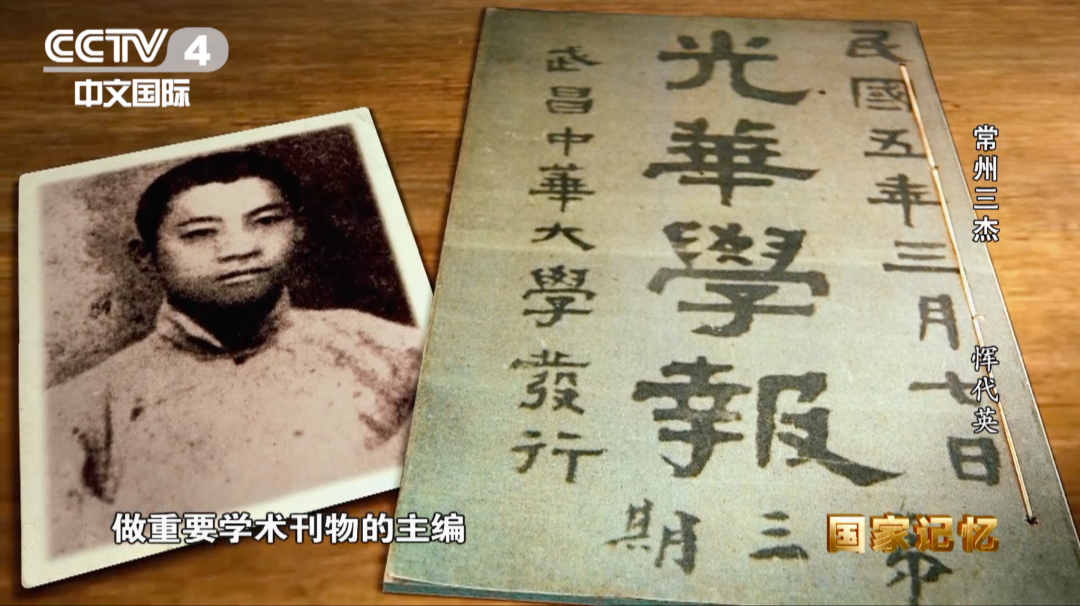 CCTV 4
中文国际
民國五年三月七日
光華學報
第三期
武昌中華大學發行
常州三杰 恽代英
做重要学术刊物的主编
国家记忆